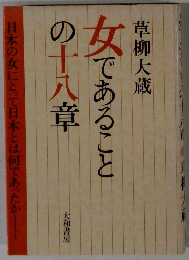 草柳大蔵
女であること
の十八章
大和書房
日本の女にとって日本とは何であったか――